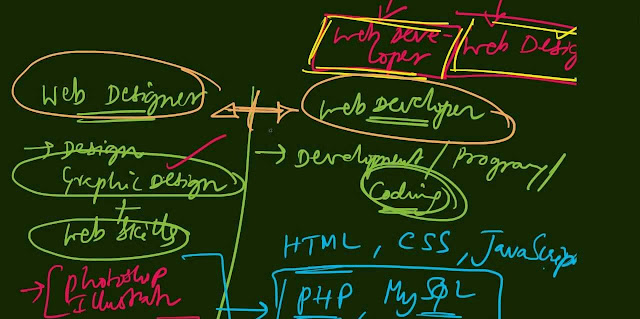 Web Deve-
loper
Web Desig
Web Designer
Web Developer
→ Design
Graphic Design
+
Web Skills
→ Development / Program/
Coding
HTML, CSS, JavaScrip
→ Photoshop
Illustrat
→ PHP, MySQL